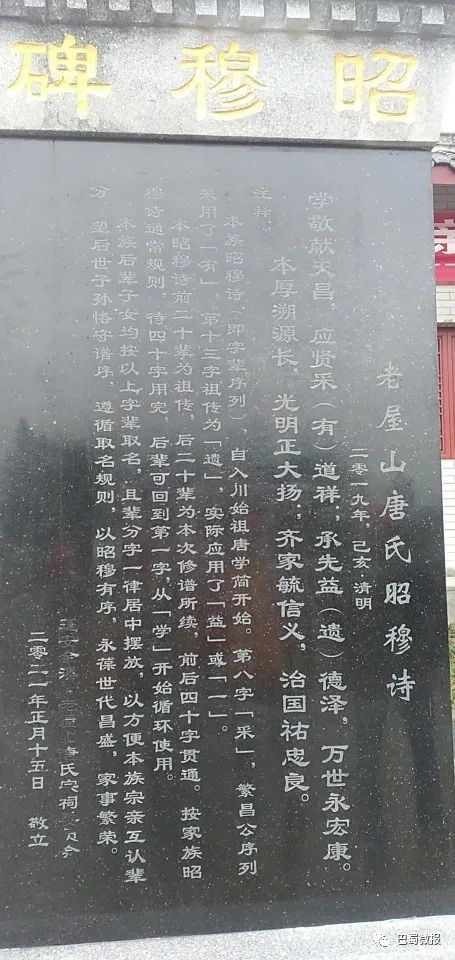 昭穆碑
老屋山唐氏昭穆诗
二零一九年，己亥·清明
学敬献天昌，应贤采（有）道祥；承先益（遗）德泽，万世永宏康。
本厚溯源长，光明正大扬；齐家毓信义，治国祐忠良。
注释：
本族昭穆诗（即字辈序列），自入川始祖唐学简开始。第八字「采」，繁昌公序列
采用了「有」，第十三字祖传为「遗」，实际应用了「益」或「一」。
本昭穆诗前二十辈为祖传，后二十辈为本次修谱所续，前后四十字贯通。按家族昭
穆诗通常规则，待四十字用完，后辈可回到第一字，从「学」开始循环使用。
本族后辈子女均按以上字辈取名，且辈分字一律居中摆放，以方便本族宗亲互认辈
分。望后世子孙恪守谱序，遵循取名规则，以昭穆有序，永葆世代昌盛，家事繁荣。
唐氏宗祠委员会
二零二一年正月十五日 敬立
巴蜀教报